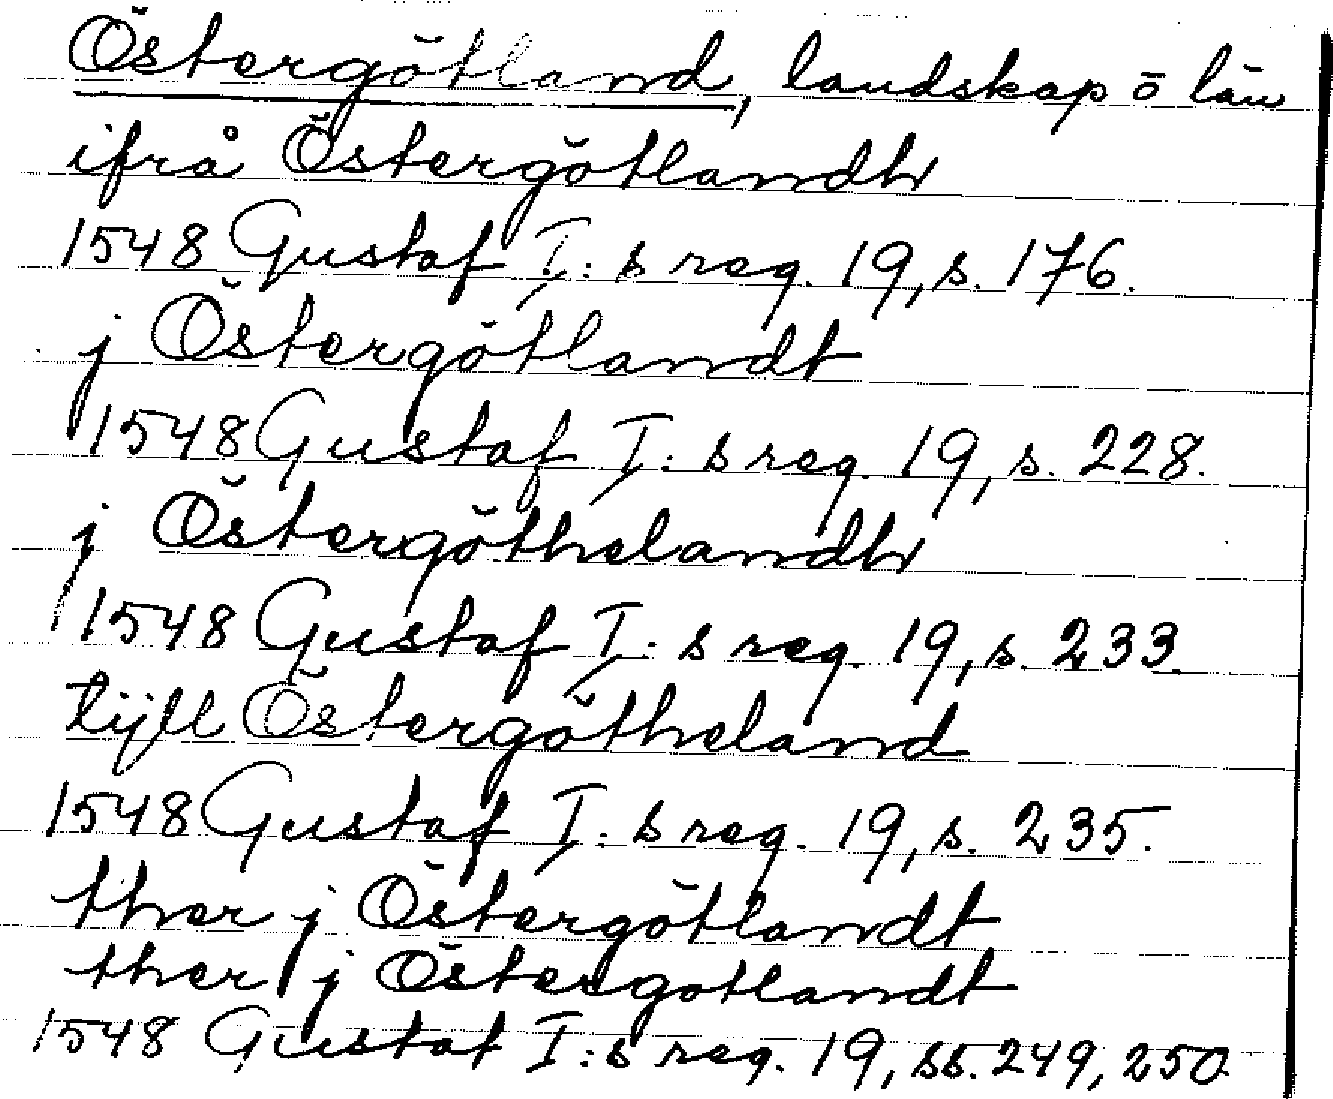 Östergötland, landskap o län
ifrå Östergötlandh
1548 Gustaf I:s reg. 19, s. 176.
j Östergötlandt
1548 Gustaf I:s reg. 19, s. 228.
j Östergöthelandh
1548 Gustaf I:s reg. 19, s. 233.
tijll Östergötheland
1548 Gustaf I:s reg. 19, s. 235.
ther j Östergötlandt
ther j Östergotlandt
1548 Gustaf I:s reg. 19, ss. 249, 250.